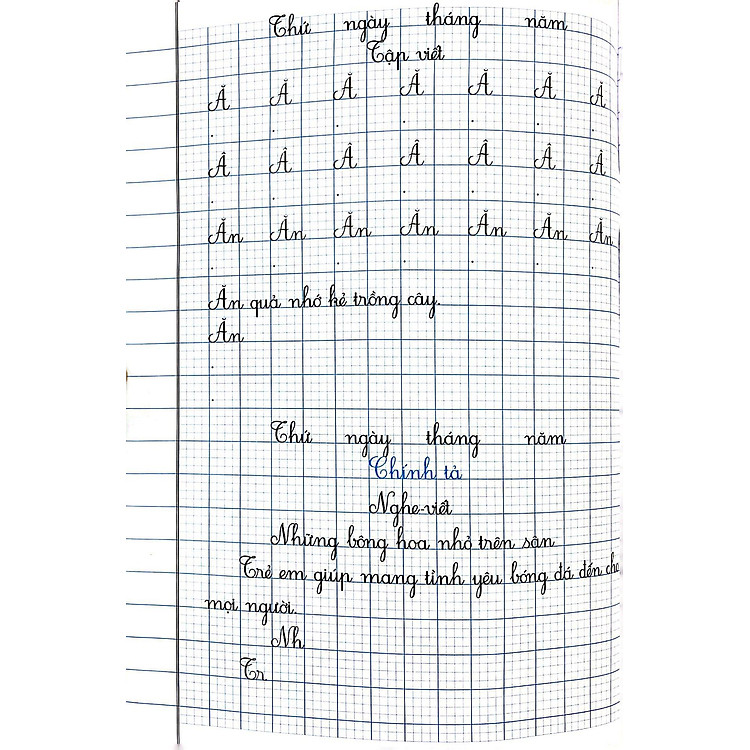 Thứ ngày tháng năm
Tập viết
Ă Ă Ă Ă Ă Ă Ă
. . . . . . .
Â Â Â Â Â Â Â
. . . . . . .
Ăn Ăn Ăn Ăn Ăn Ăn Ăn
. . . . . . .
Ăn quả nhớ kẻ trồng cây.
Ăn
.
.
Thứ ngày tháng năm
Chính tả
Nghe-viết
Những bông hoa nhỏ trên sân
Trẻ em giúp mang tình yêu bóng đá đến cho
mọi người.
Nh
Tr